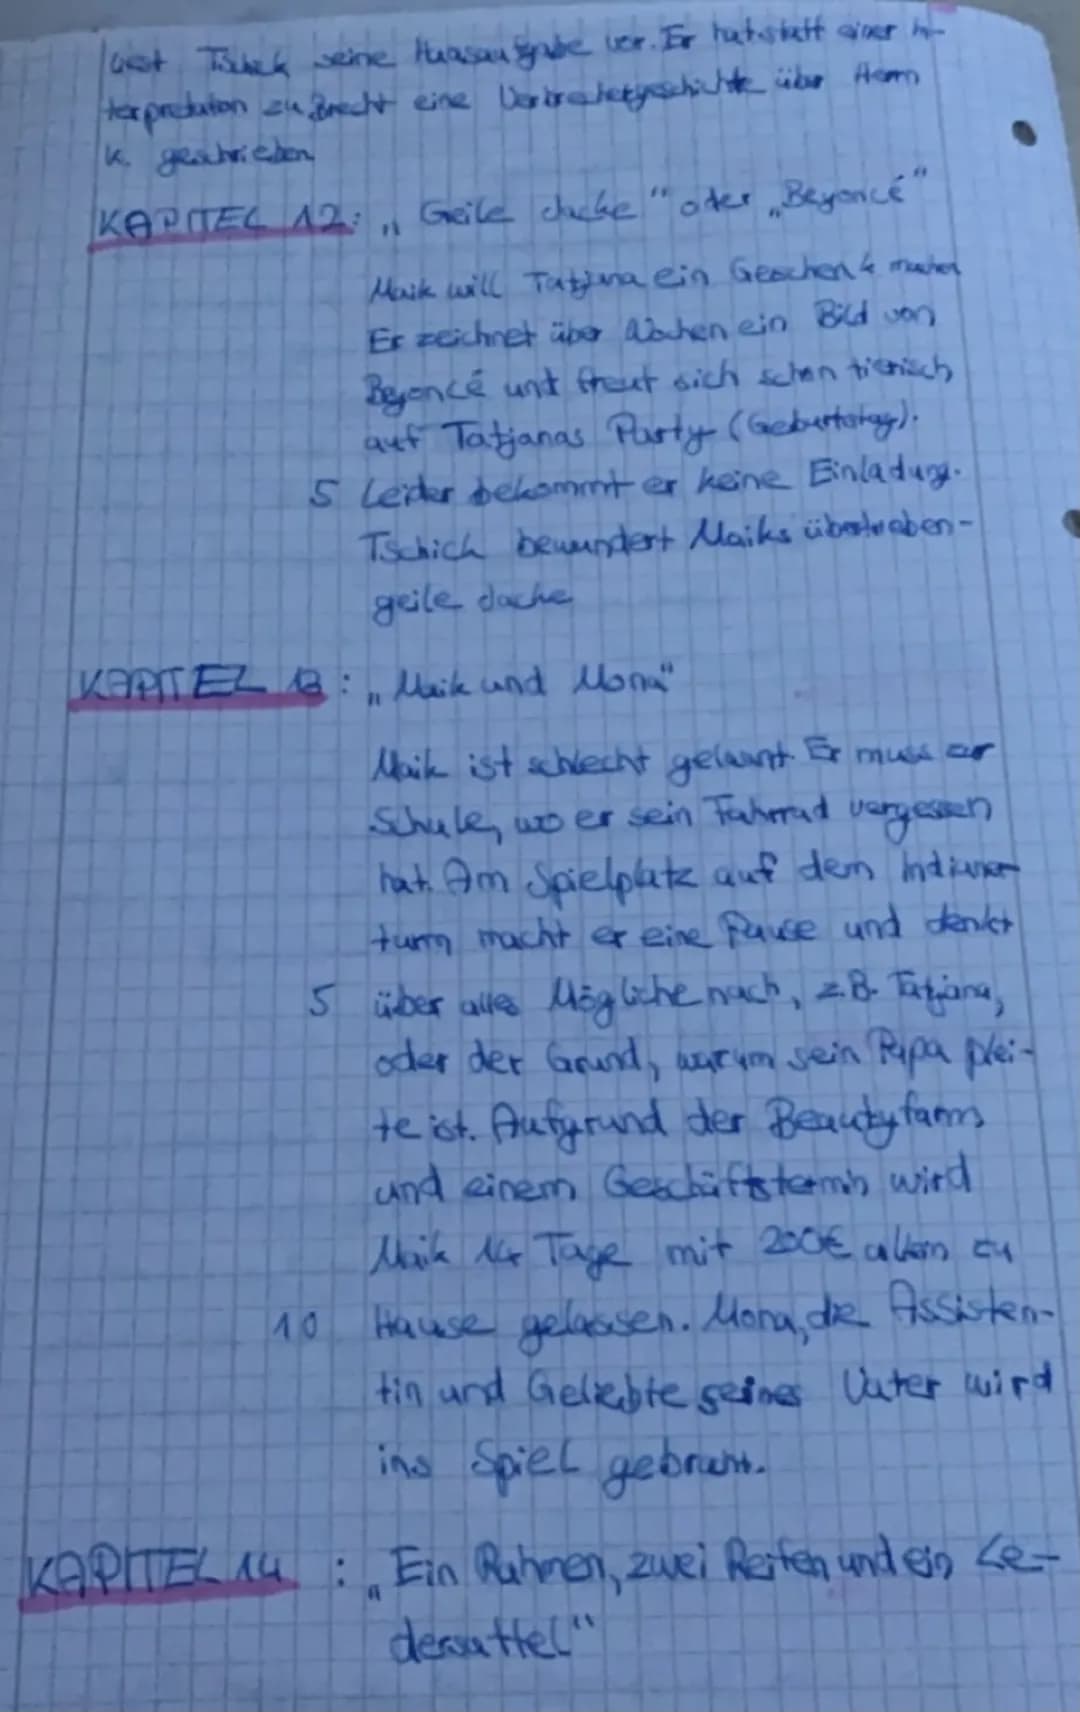 liest Tschick seine Huasaufgabe vor. Er hat statt einer In-
terpretation zu Brecht eine Verbrechergeschichte über Herrn
K. geschrieben
KAPITEL 12: „Geile Jacke" oder „Beyoncé"
Maik will Tatjana ein Geschenk machen
Er zeichnet über Wochen ein Bild von
Beyoncé und freut sich schon tierisch
auf Tatjanas Party (Geburtstag).
5 Leider bekommt er keine Einladung.
Tschick bewundert Maiks übertrieben-
geile Jacke
KAPITEL 13: „Maik und Mona"
Maik ist schlecht gelaunt. Er muss zur
Schule, wo er sein Fahrrad vergessen
hat. Am Spielplatz auf dem Indianer
turm macht er eine Pause und denkt
5 über alles Mögliche nach, z.B. Tatjana,
oder der Grund, warum sein Papa plei-
te ist. Aufgrund der Beautyfarm
und einem Geschäftstermin wird
Maik 14 Tage mit 200€ allein zu
10 Hause gelassen. Mona, die Assisten-
tin und Geliebte seines Vater wird
ins Spiel
KAPITEL 14: „Ein Rahmen, zwei Reifen und ein Le-
dersattel"